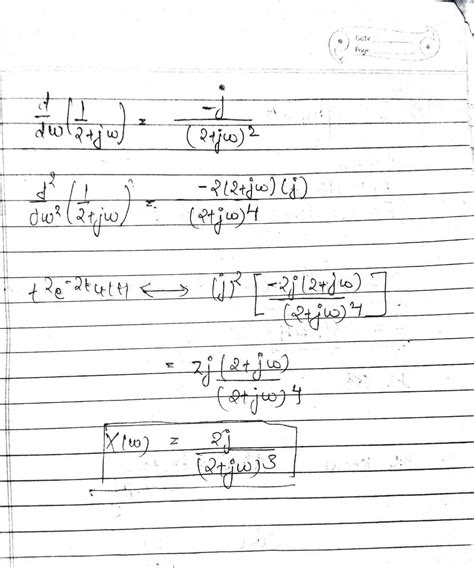 Date
Page
d/dω (1/2+jω) = -j/(2+jω)2
d2/dω2 (1/2+jω) = -2(2+jω)(j)/(2+jω)4
t2e-2tu(t) ⟷ (j)2 [-2j(2+jω)/(2+jω)4]
= 2j(2+jω)/(2+jω)4
X(ω) = 2j/(2+jω)3